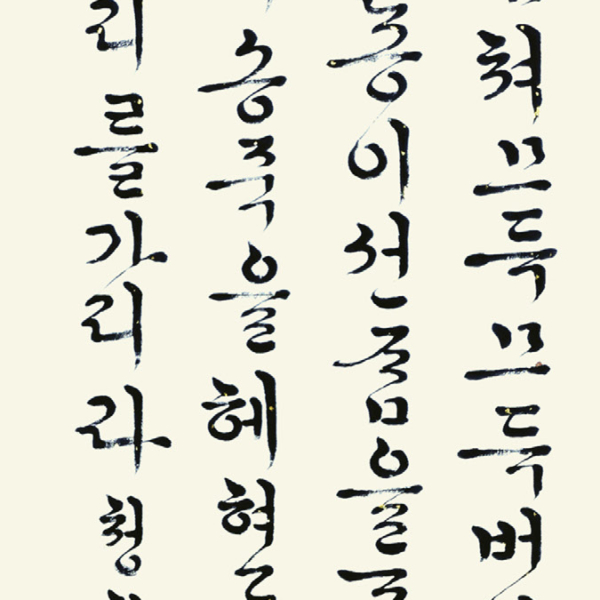 쳐므득므득버
뇽이선줌을
송쥭을헤혀
리를가리라쳥